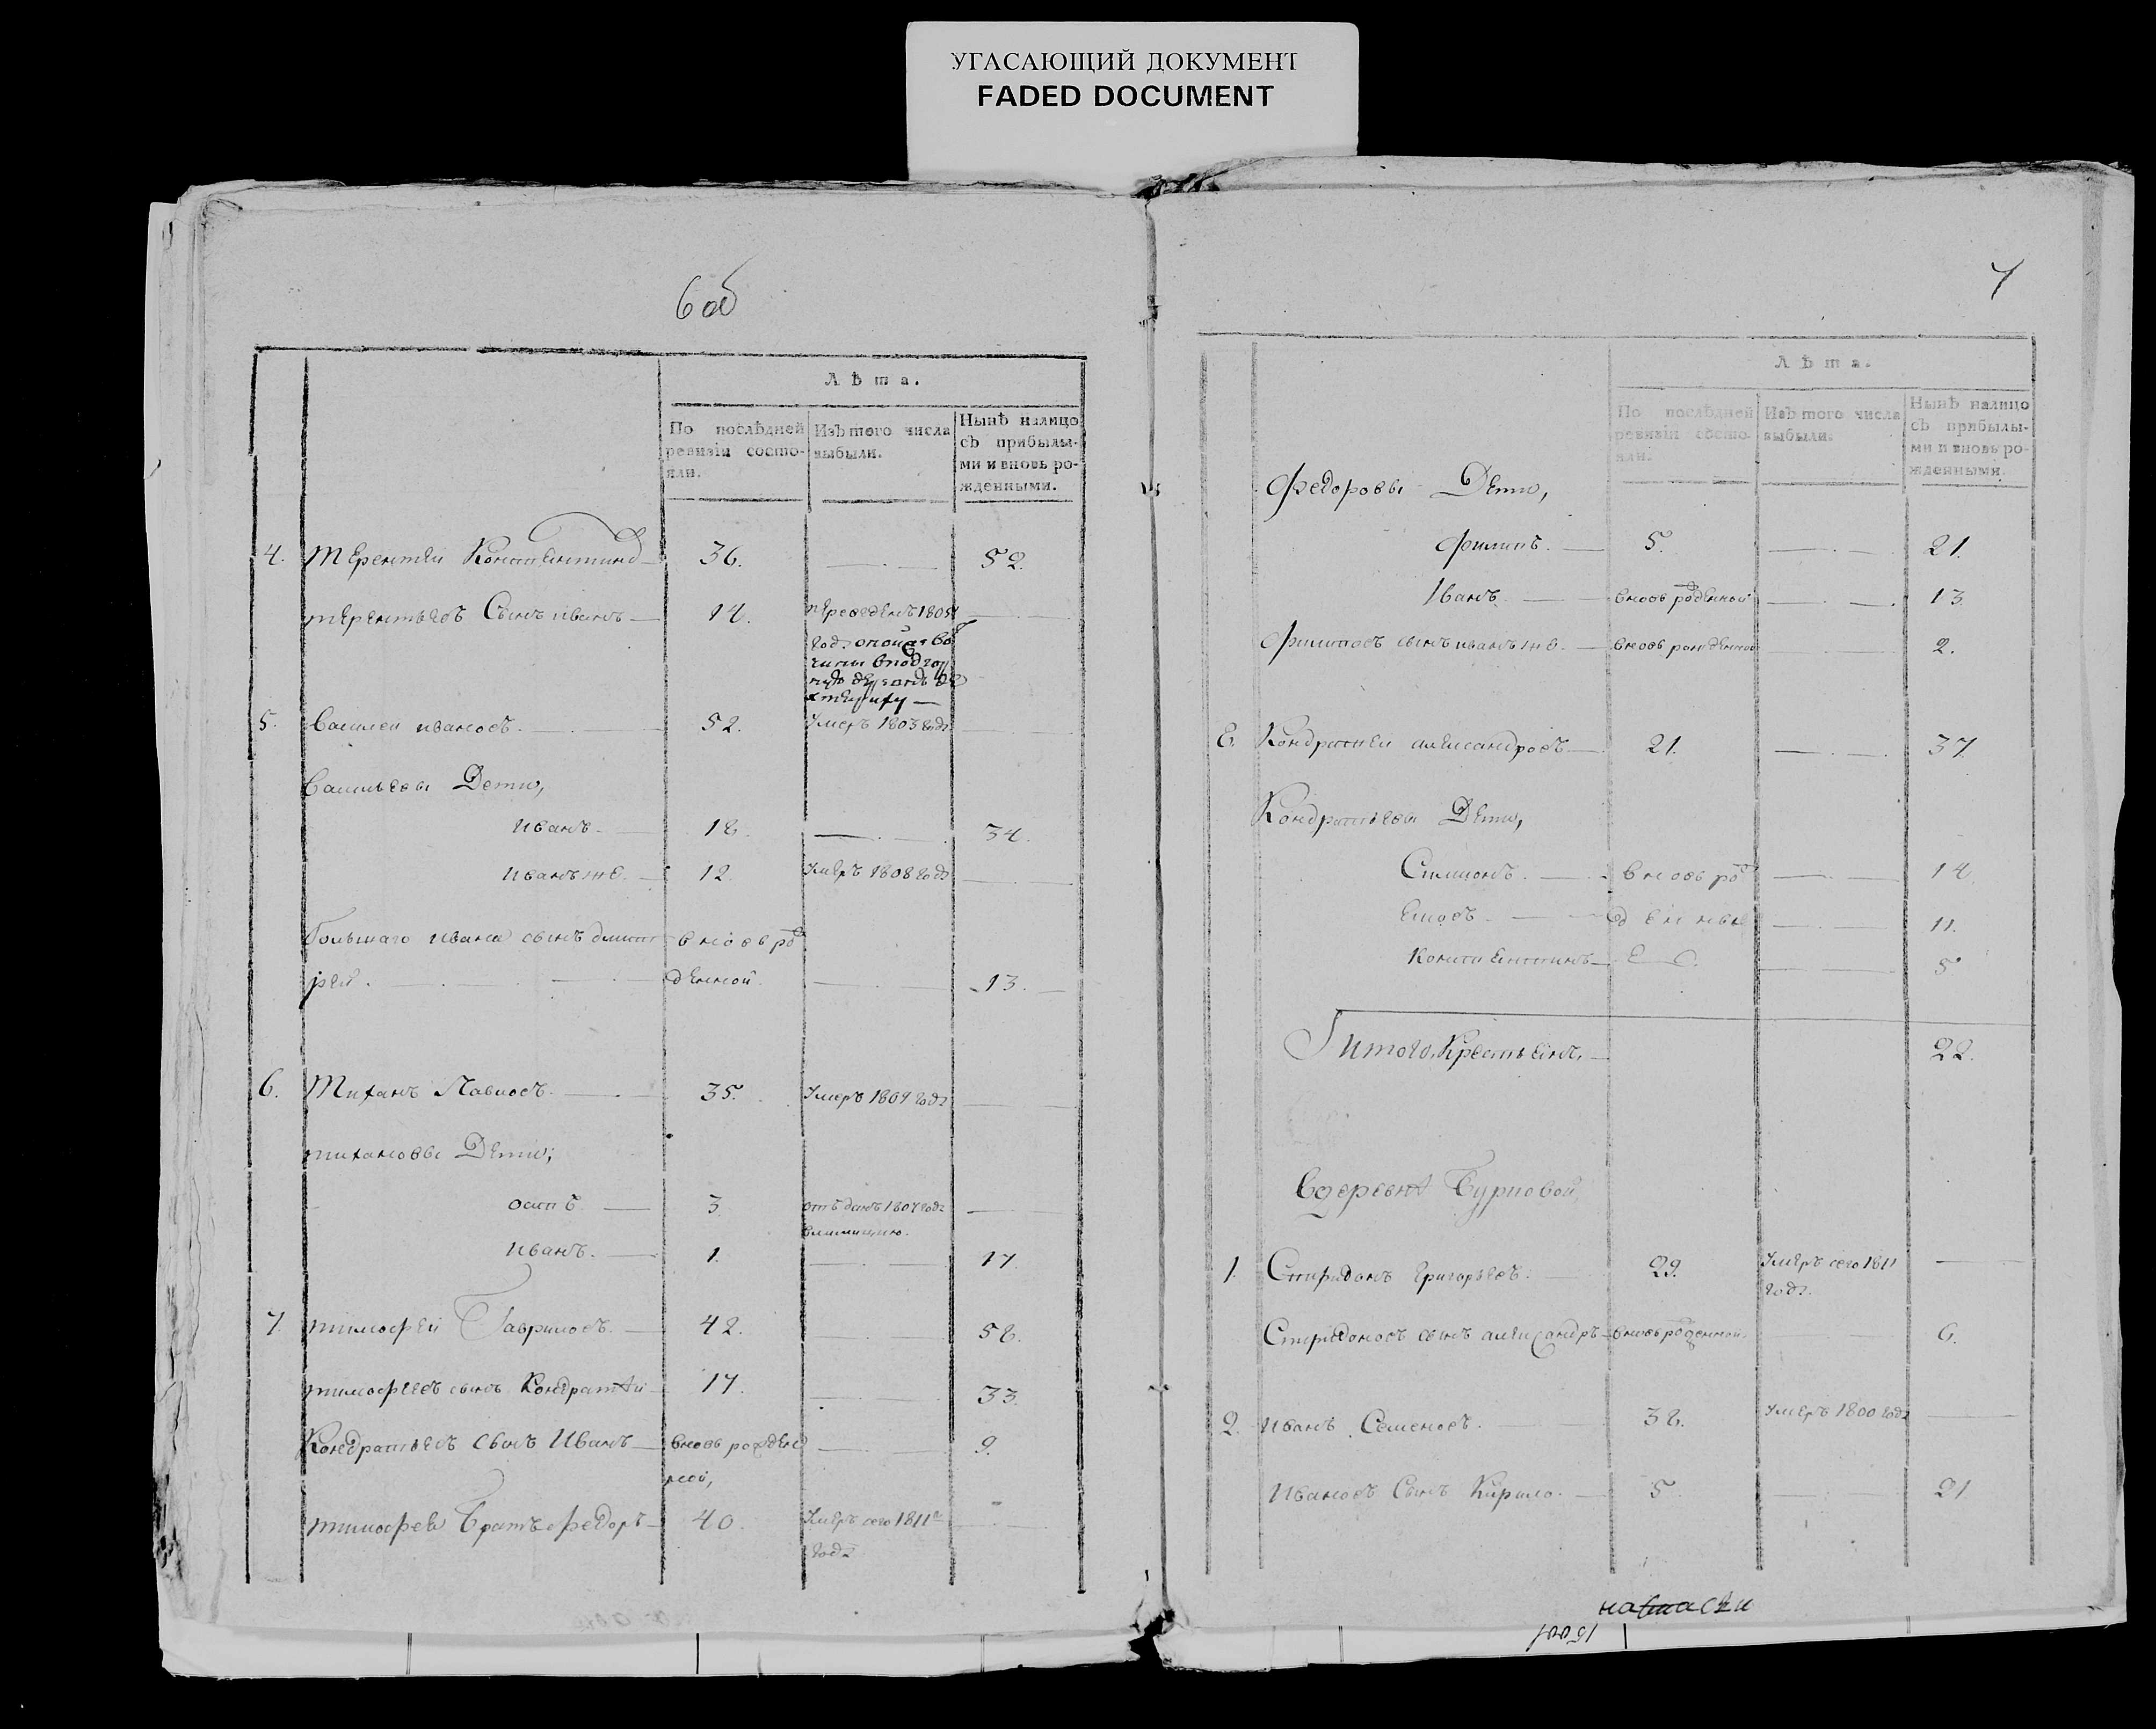 УГАСАЮЩИЙ ДОКУМЕНТ
FADED DOCUMENT
6 об
Лѣта.
По послѣдней ревизіи состояли.
Изъ того числа выбыли.
Нынѣ налицо съ прибылыми и вновь рожденными.
4. Терентей Констентинов 36. 52.
терентьевъ Сынъ иванъ 14. переведенъ 1805
году
5. Василеи ивановъ. 52. Умеръ 1803 году
Васильевы Дети,
Иванъ. 18. 34.
Иванъ же. 12. Умеръ 1808 году
большаго ивана сынъ дмит вновь ро
рей. денной. 13.
6. Тиханъ Павловъ. 35. Умеръ 1809 году
тихановы Дети;
осипъ 3. отъданъ 1807 году
вмилицию.
Иванъ. 1. 17.
7. тимофей Гавриловъ. 42. 58.
тимофеевъ сынъ Кондратѣй 17. 33.
Кондратьевъ сынъ Иванъ вновь рожден 9.
ной,
тимофеев Братъ федоръ 40. Умеръ сего 1811го
году
7
Лѣта.
По послѣдней ревизіи состояли.
Изъ того числа выбыли.
Нынѣ налицо съ прибылыми и вновь рожденными.
Федоровы Дети,
филипъ. 5. 21.
Иванъ. вновь роденной 13.
филиповъ сынъ иванъ же. вновь рожденной 2.
8. Кондратеи александровъ 21. 37.
Кондратьевы Дети,
Симионъ. вновь ро 14.
денные 11.
Констентинъ 5
Итого, Крестьянъ, 22.
Вдеревнѣ Бурновой,
1. Спиридонъ григорьевъ. 29. Умеръ сего 1811
году.
Спиридоновъ сынъ александръ вновь роденной. 6.
2. иванъ Семеновъ. 38. Умеръ 1800 году
Ивановъ Сынъ Кирило. 5. 21